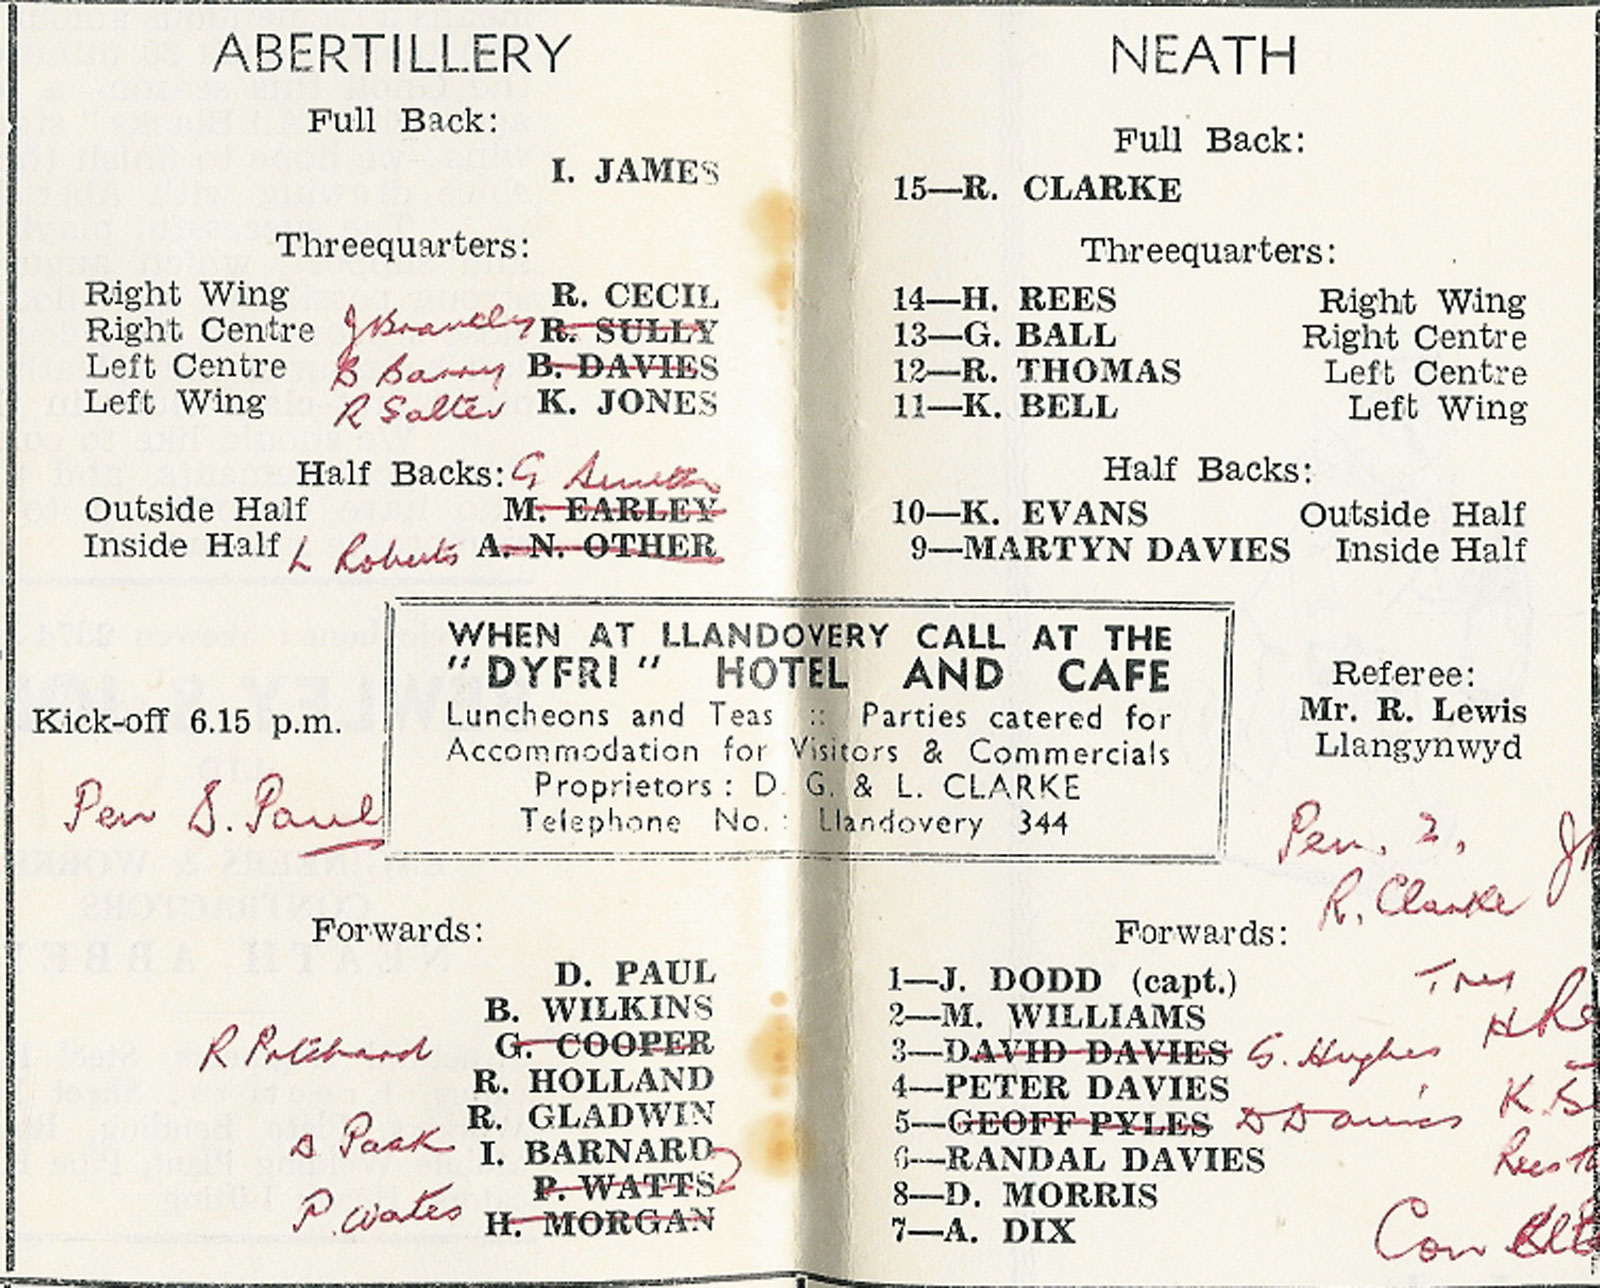 ABERTILLERY
Full Back:
I. JAMES
Threequarters:
Right Wing R. CECIL
Right Centre R. SULLY
Left Centre B Barry B. DAVIES
Left Wing R Salter K. JONES
Half Backs: G
Outside Half M. EARLEY
Inside Half L Roberts A. N. OTHER
NEATH
Full Back:
15—R. CLARKE
Threequarters:
14—H. REES Right Wing
13—G. BALL Right Centre
12—R. THOMAS Left Centre
11—K. BELL Left Wing
Half Backs:
10—K. EVANS Outside Half
9—MARTYN DAVIES Inside Half
Kick-off 6.15 p.m.
WHEN AT LLANDOVERY CALL AT THE
"DYFRI" HOTEL AND CAFE
Luncheons and Teas :: Parties catered for
Accommodation for Visitors & Commercials
Proprietors: D. G. & L. CLARKE
Telephone No.: Llandovery 344
Referee:
Mr. R. Lewis
Llangynwyd
Pen D. Paul
Pen. 2.
R. Clarke
Forwards:
D. PAUL
B. WILKINS
R Pritchard G. COOPER
R. HOLLAND
R. GLADWIN
I. BARNARD
P. WATTS
P. Wates H. MORGAN
Forwards:
1—J. DODD (capt.)
2—M. WILLIAMS
3—DAVID DAVIES G. Hughes
4—PETER DAVIES
5—GEOFF PYLES D Davies
6—RANDAL DAVIES
8—D. MORRIS
7—A. DIX
Con